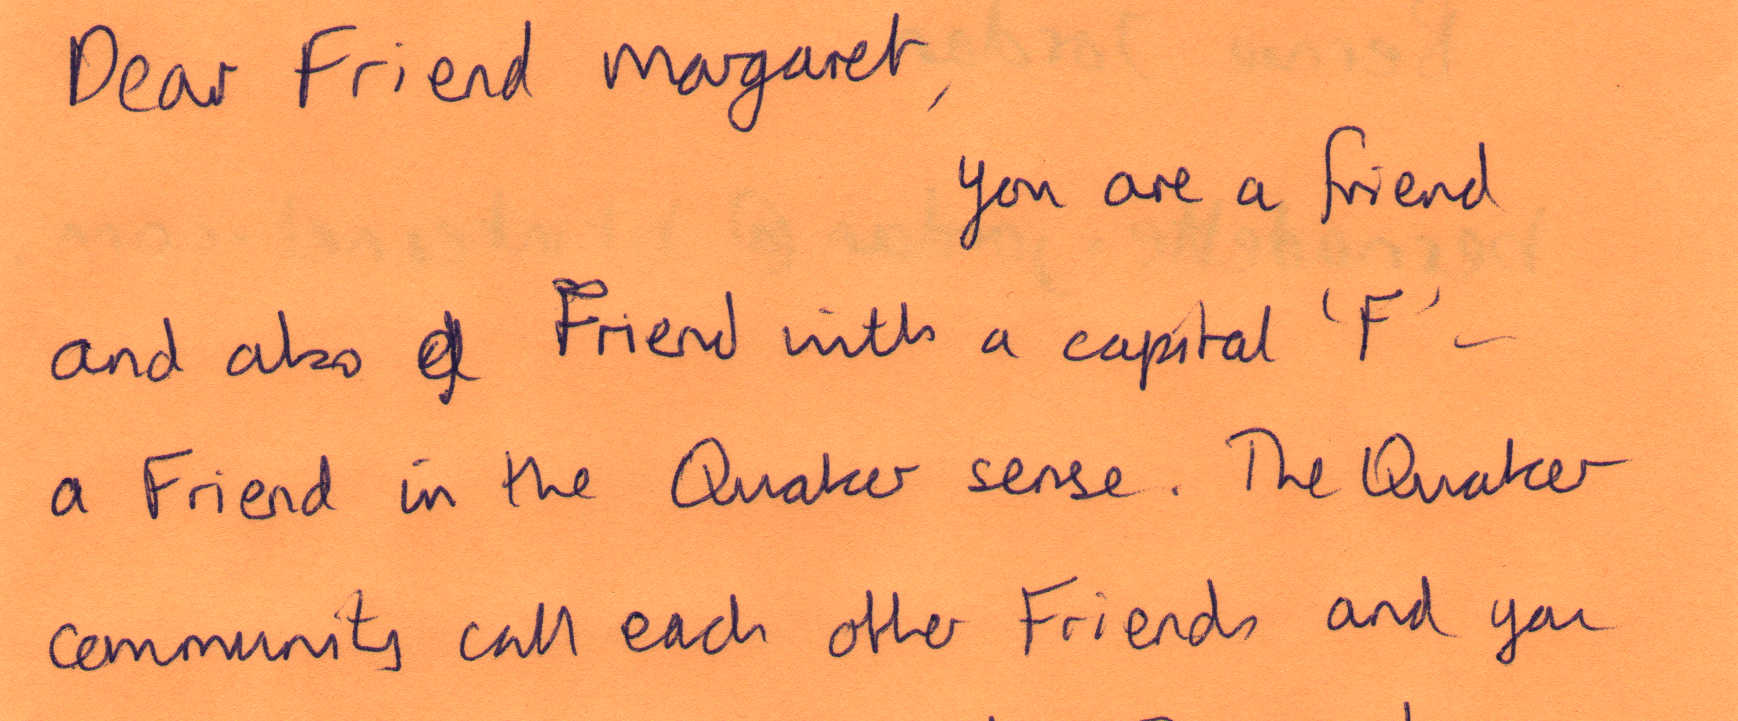 Dear Friend Margaret,
you are a friend
and also a Friend with a capital 'F' –
a Friend in the Quaker sense. The Quaker
community call each other Friends and you